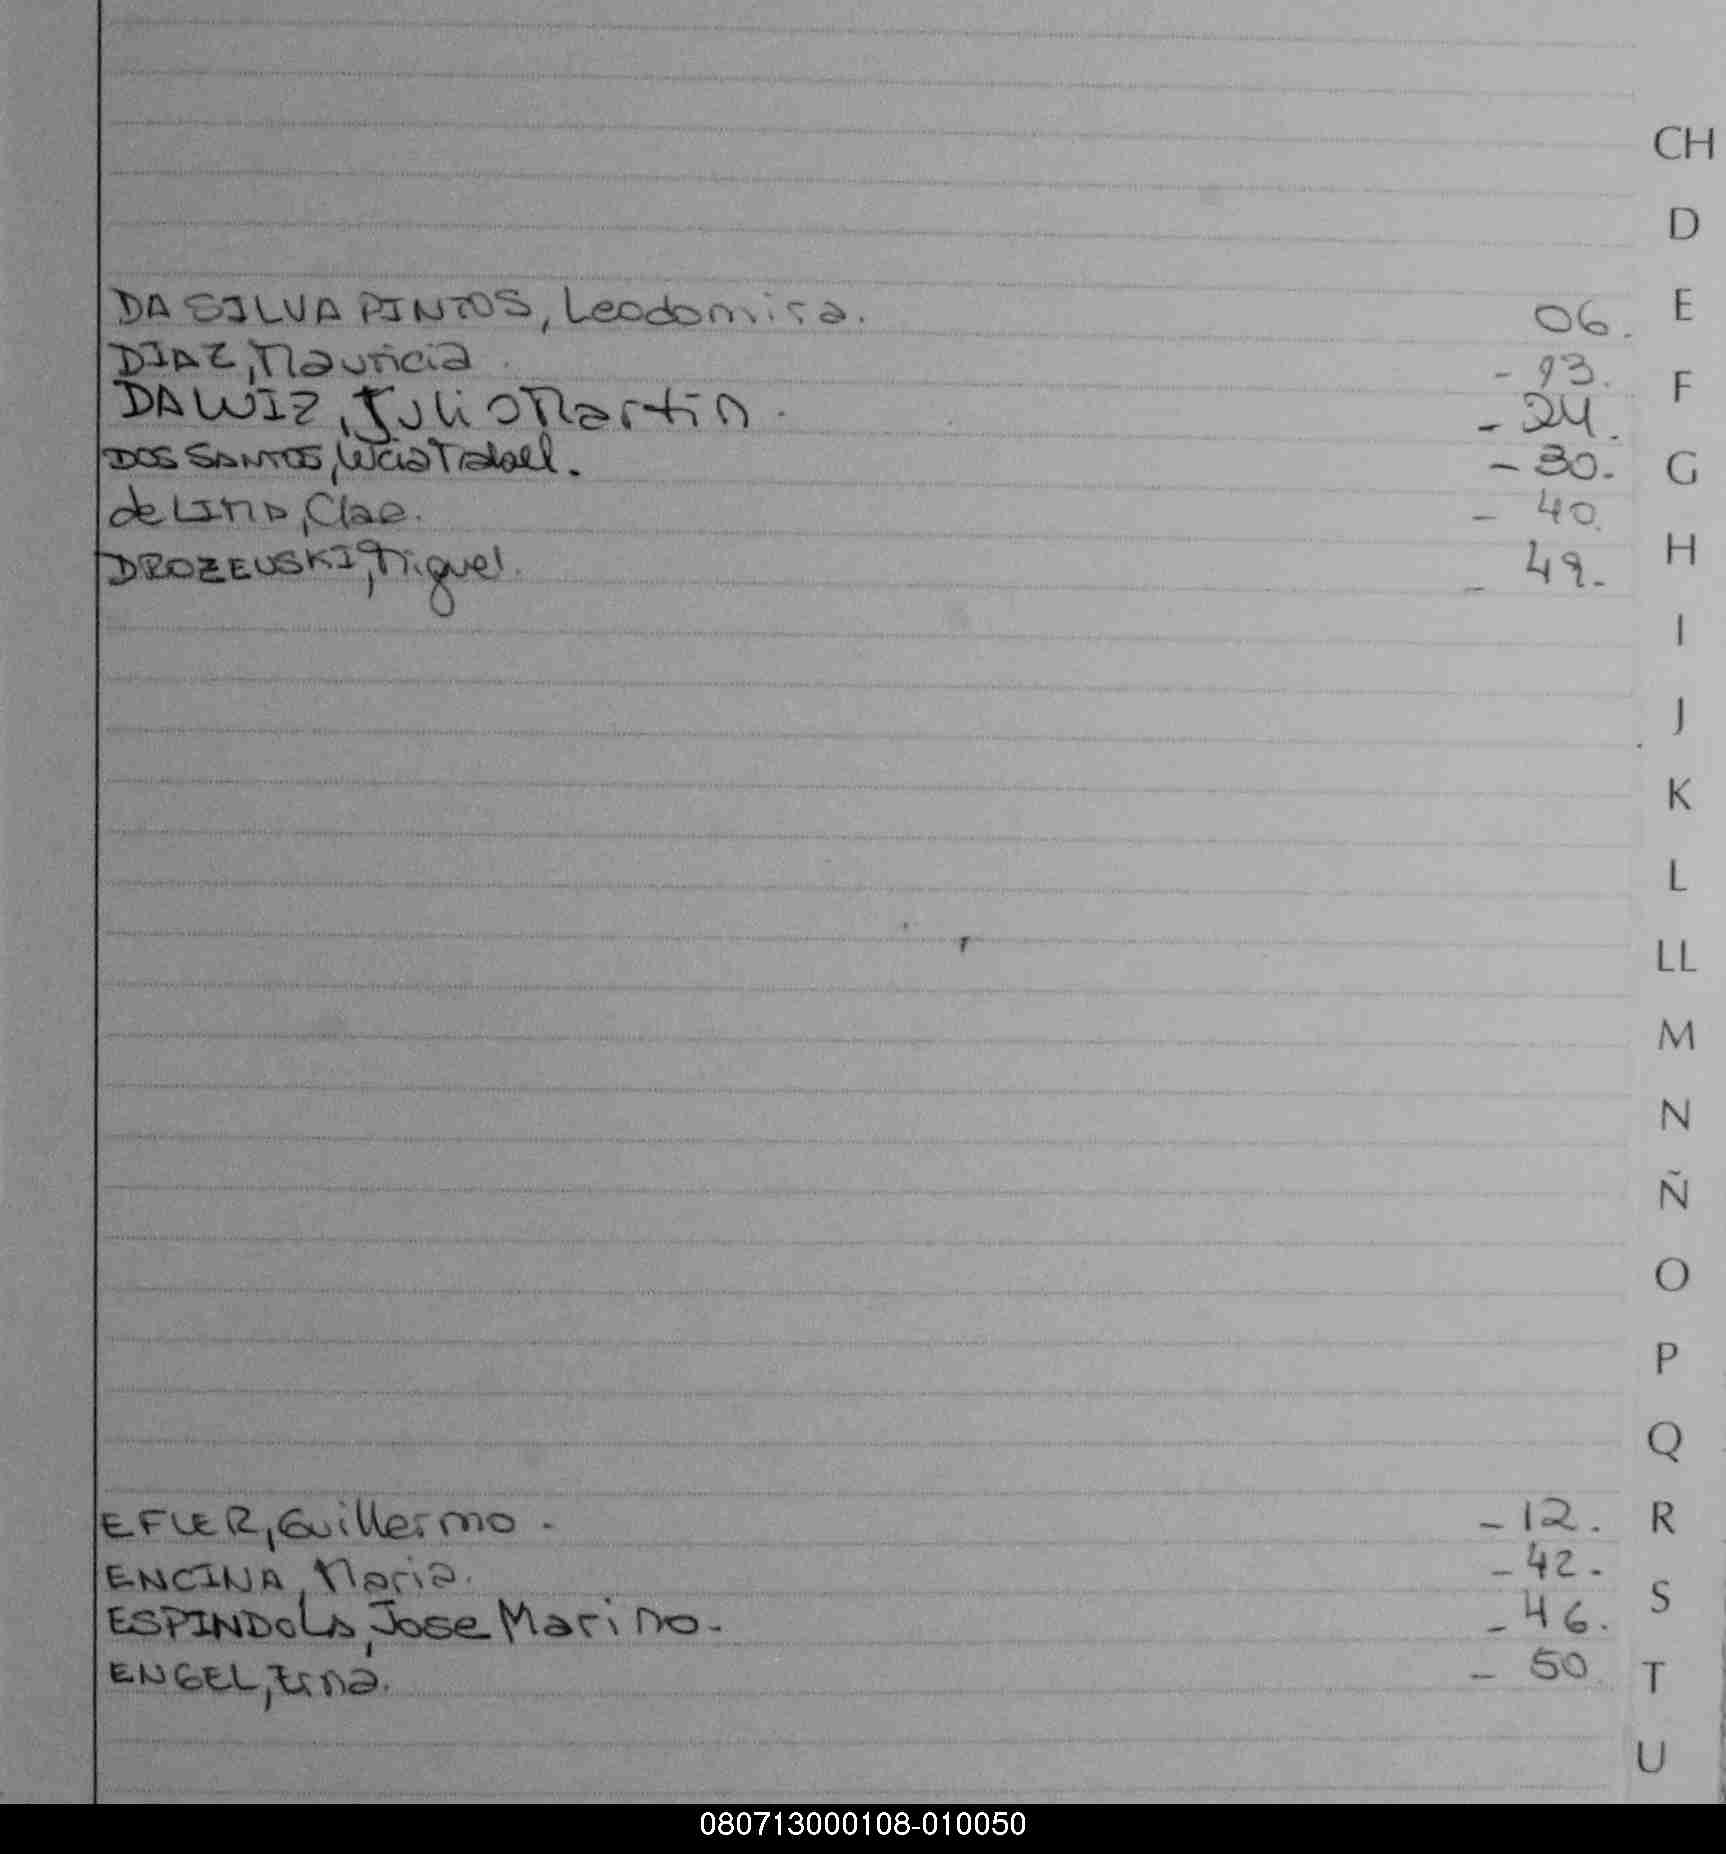 CH
D
DA SILVA PINTOS, Leodomira. 06. E
DIAZ, Mauricia. - 13.
F
DAWIZ, Julio Martin. - 24.
DOS SANTOS, - 30. G
de LIMA, Clae. - 40.
DROZEUSKI, Miguel. - 49. H
I
J
K
L
LL
M
N
Ñ
O
P
Q
EFLER, Guillermo. - 12. R
ENCINA, Maria. - 42.
S
ESPINDOLA, Jose Marino. - 46.
ENGEL, Erna. - 50. T
U
080713000108-010050